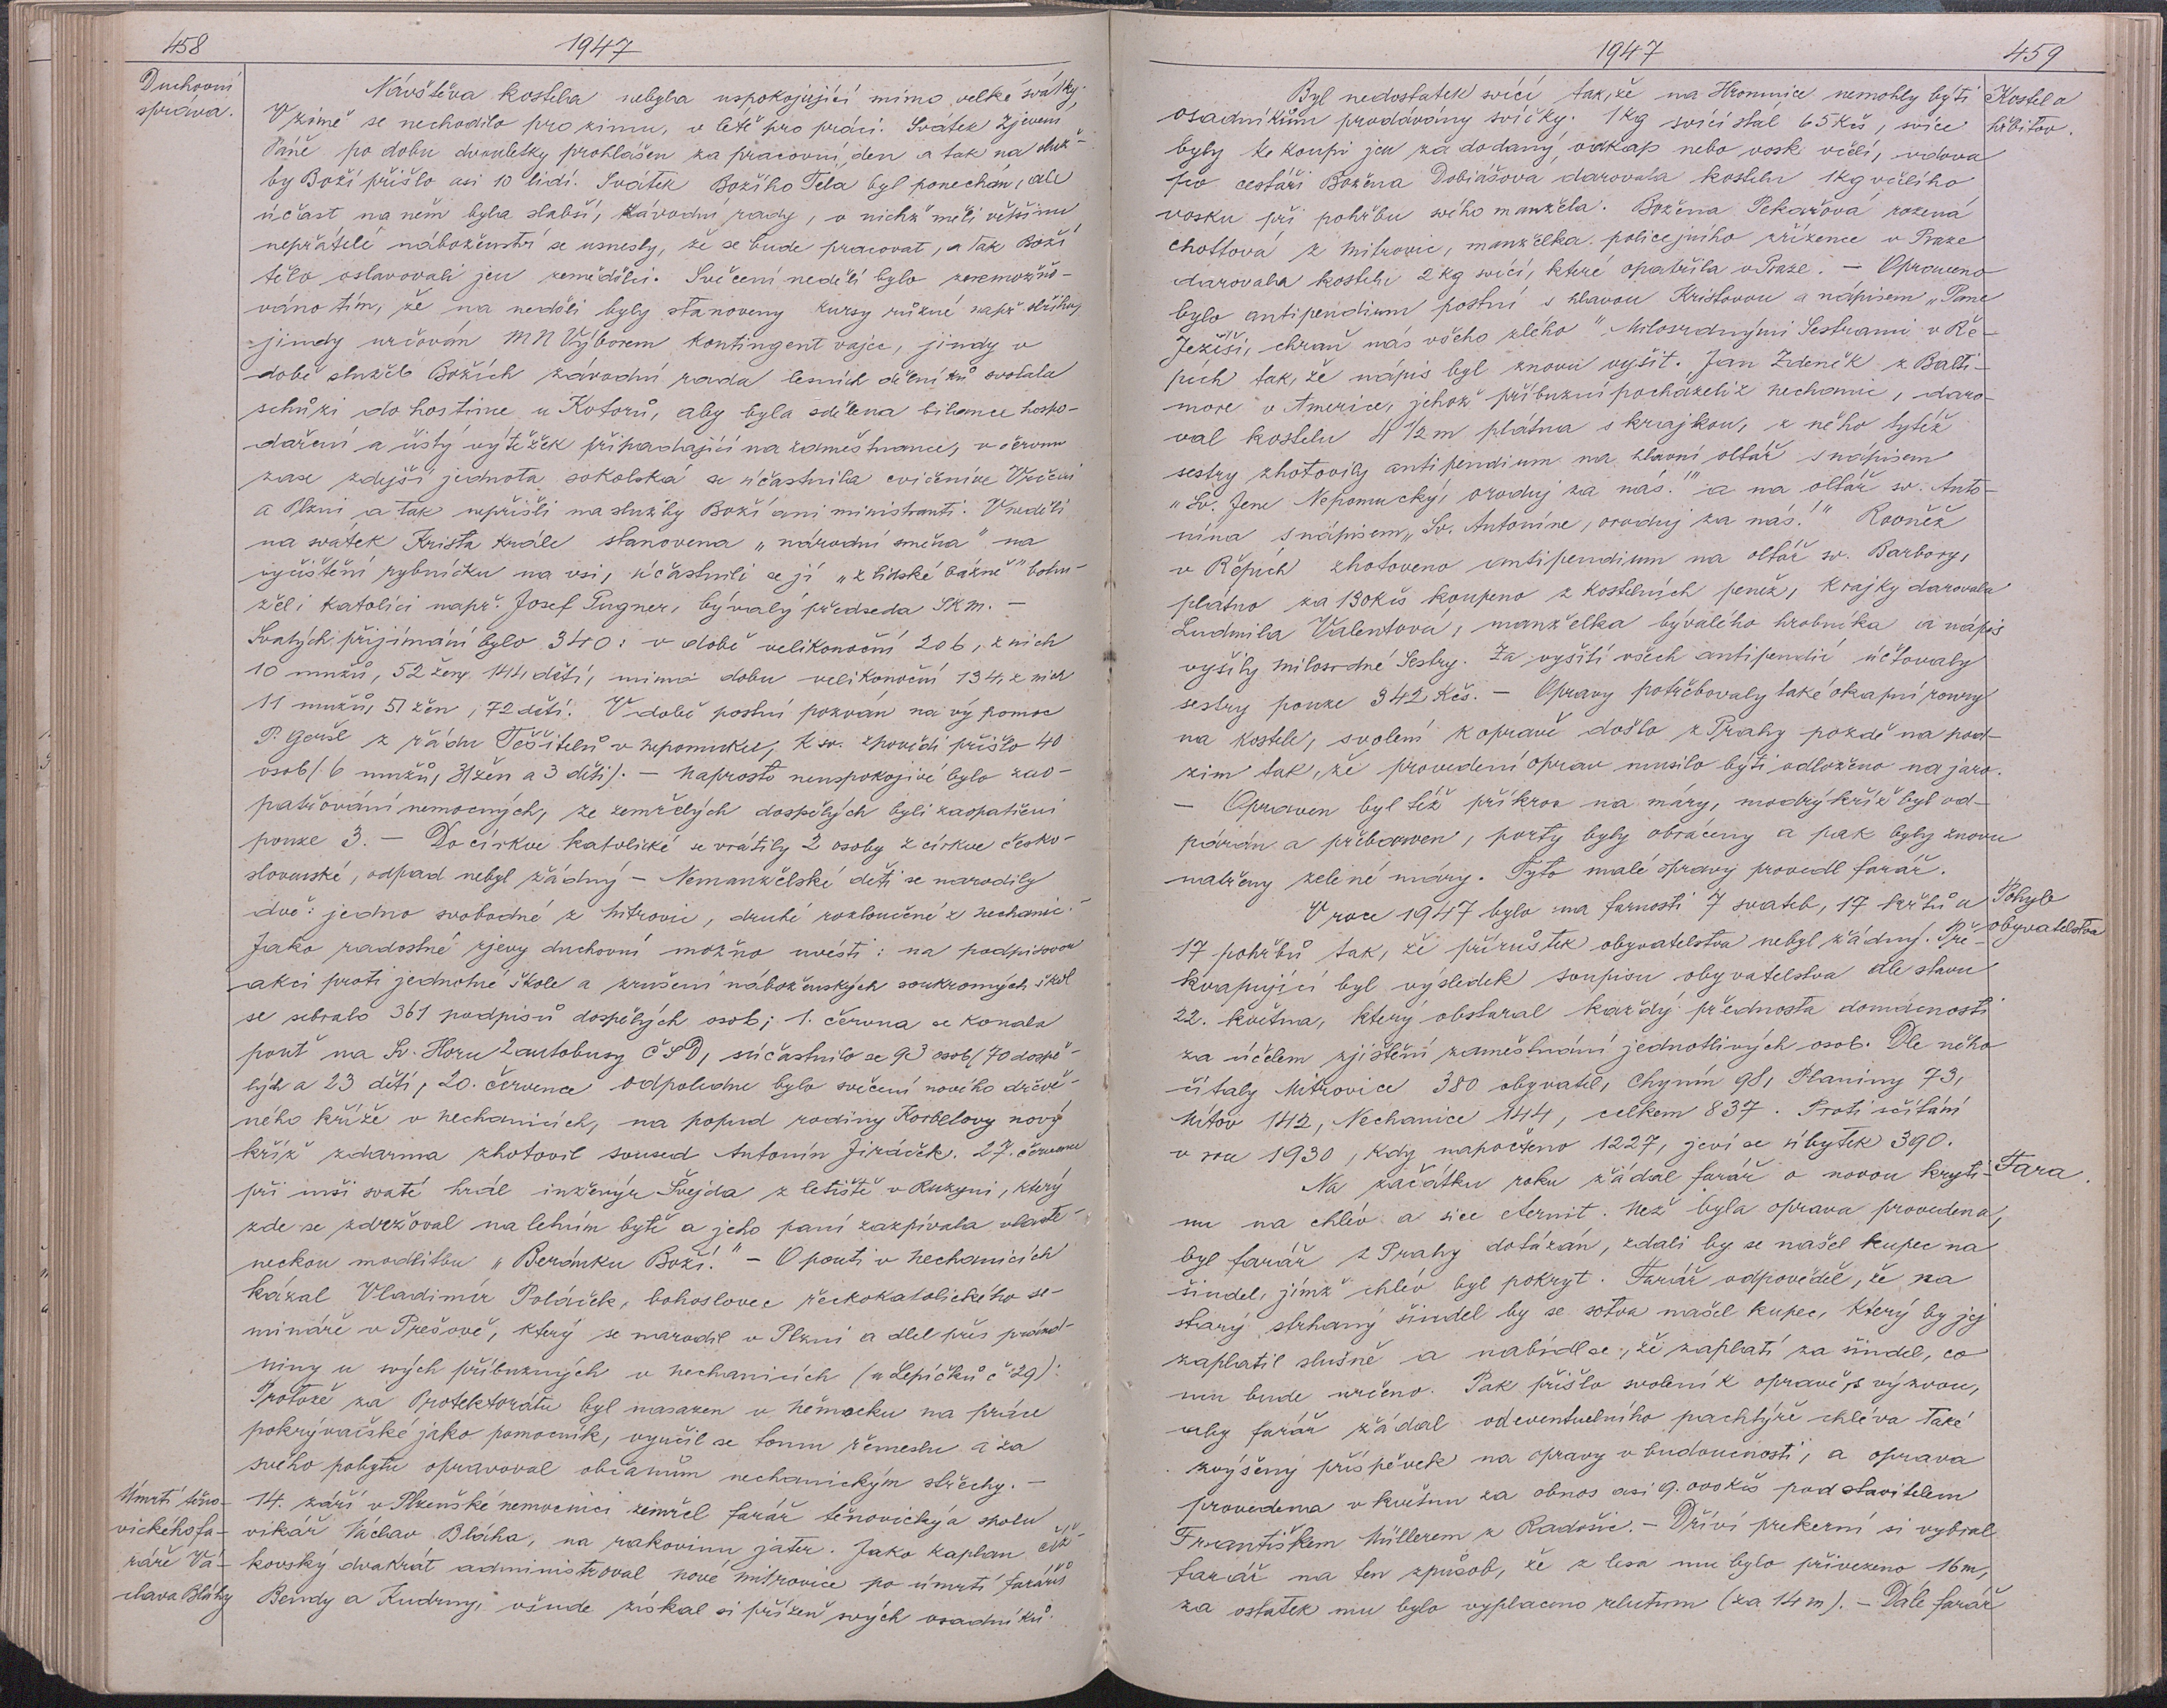 458
1947
Duchovní
správa.
Návštěva kostela nebyla uspokojující mimo velké svátky.
V zimě se nechodilo pro zimu, v létě pro práci. Svátek Zjevení
Páně po dobu dvouletky prohlášen za pracovní den a tak na služ-
by Boží přišlo asi 10 lidí. Svátek Božího Těla byl ponechán, ale
účast na něm byla slabší, závodní rady, v nichž měli většinu
nepřátelé náboženství se usnesly, že se bude pracovat, a tak Boží
tělo oslavovali jen zemědělci. Svěcení neděli bylo znemožňo-
váno tím, že na neděli byly stanoveny kursy různé např.
jindy určován MN Výborem kontingent vajec, jindy v
době služeb Božích závodní rada lesních dělníků svolala
schůzi do hostince u Kotorů, aby byla sdělena bilance hospo-
daření a čistý výtěžek připadající na zaměstnance, v červnu
zase zdejší jednota sokolská se účastnila cvičení ve Vrčeni
a Plzni a tak nepřišli na služby Boží ani ministranti. V neděli
na svátek Krista Krále stanovena „národní směna" na
vyčištění rybníčku na vsi, účastnili se jí „z lidské bázně" bohu-
žel i katolíci např. Josef Pugner, bývalý předseda SKM. —
Svatých přijímání bylo 340: v době velikonoční 206, z nich
10 mužů, 52 ženy 144 dětí, mimo dobu velikonoční 134, z nich
11 mužů, 51 žen, 72 dětí. V době postní pozván na výpomoc
P. Geršl z řádu Těšitelů v Nepomuku, k sv. zpovědi přišlo 40
osob (6 mužů, 31 žen a 3 děti). — Naprosto neuspokojivé bylo zao-
patřování nemocných, ze zemřelých dospělých byli zaopatřeni
pouze 3. — Do církve katolické se vrátily 2 osoby z církve česko-
slovenské, odpad nebyl žádný — Nemanželské děti se narodily
dvě: jedno svobodné z Mitrovic, druhé rozloučené z Nechanic. —
Jako radostné zjevy duchovní možno uvésti: na podpisovou
akci proti jednotné škole a zrušení náboženských soukromých škol
se sebralo 361 podpisů dospělých osob; 1. června se konala
pouť na Sv. Horu 2 autobusy ČSD, súčastnilo se 93 osob (70 dospě-
lých a 23 dětí, 20. července odpoledne bylo svěcení nového dřevě-
ného kříže v Nechanicích, na popud rodiny Korbelovy nový
kříž zdarma zhotovil soused Antonín Jiráček. 27. července
při mši svaté hrál inženýr Švejda z letiště v Ruzyni, který
zde se zdržoval na letním bytě a jeho paní zazpívala vlaste-
neckou modlitbu „Beránku Boží." — O pouti v Nechanicích
kázal Vladimír Poláček, bohoslovec řeckokatolického se-
mináře v Prešově, který se narodil v Plzni a dlel přes prázd-
niny u svých příbuzných v Nechanicích (u Lepíčků č 29):
Protože za Protektorátu byl nasazen v Německu na práce
pokrývačské jako pomocník, vyučil se tomu řemeslu a za
svého pobytu opravoval občanům nechanickým střechy. —
Úmrtí těno-
vického fa-
ráře Vá-
clava Bláhy
14. září v Plzeňské nemocnici zemřel farář těnovický a spolu
vikář Václav Bláha, na rakovinu jater. Jako kaplan čiž-
kovský dvakrát administroval Nové Mitrovice po úmrtí farářů
Bendy a Kudrny, všude získal si přízeň svých osadníků.
1947
459
Kostel a
hřbitov.
Byl nedostatek svící tak, že na Hromnice nemohly býti
osadníkům prodávány svíčky. 1 kg svící stál 65 Kčs, svíce
byly ke koupi jen za dodaný odkap nebo vosk včelí, vdova
po cestáři Božena Dobiášová darovala kostelu 1 kg včelího
vosku při pohřbu svého manžela. Božena Pekařová rozená
Chottová z Mitrovic, manželka policejního zřízence v Praze
darovala kostelu 2 kg svící, které opatřila v Praze. — Opraveno
bylo antipendium postní s hlavou Kristovou a nápisem „Pane
Ježíši, chraň nás všeho zlého" Milosrdnými Sestrami v Ře-
pích tak, že nápis byl znovu vyšit. Jan Zdeněk z Balti-
more v Americe, jehož příbuzní pocházeli z Nechanic, daro-
val kostelu 4 1/2 m plátna s krajkou, z něho tytéž
sestry zhotovily antipendium na hlavní oltář s nápisem
„Sv. Jene Nepomucký, oroduj za nás!" a na oltář sv. Anto-
nína s nápisem „Sv. Antoníne, oroduj za nás!" Rovněž
v Řepích zhotoveno antipendium na oltář sv. Barbory,
plátno za 130 Kčs koupeno z kostelních peněz, krajky darovala
Ludmila Valentová, manželka bývalého hrobníka a nápis
vyšily Milosrdné Sestry. Za vyšití všech antipendií účtovaly
sestry pouze 342 Kčs. — Opravy potřebovaly také okapní roury
na kostele, svolení k opravě došlo z Prahy pozdě na pod-
zim tak, že provedení oprav musilo býti odloženo na jaro.
— Opraven byl též příkrov na máry, modrý kříž byl od-
párán a přebarven, porty byly obráceny a pak byly znovu
natřeny zeleně máry. Tyto malé opravy provedl farář.
Pohyb
obyvatelstva
V roce 1947 bylo na farnosti 7 svateb, 17 křtů a
17 pohřbů tak, že přírůstek obyvatelstva nebyl žádný. Pře-
kvapující byl výsledek soupisu obyvatelstva dle stavu
22. května, který obstaral každý přednosta domácnosti
za účelem zjištění zaměstnání jednotlivých osob. Dle něho
čítaly Mitrovice 380 obyvatel, Chynín 98, Planiny 73,
Mítov 142, Nechanice 144, celkem 837. Proti sčítání
v roce 1930, kdy napočteno 1227, jeví se úbytek 390.
Fara.
Na začátku roku žádal farář o novou kryti-
nu na chlév a sice eternit. Než byla oprava provedena,
byl farář z Prahy dotázán, zdali by se našel kupec na
šindel, jímž chlév byl pokryt. Farář odpověděl, že na
starý strhaný šindel by se sotva našel kupec, který by jej
zaplatil slušně a nabídl se, že zaplatí za šindel, co
mu bude určeno. Pak přišlo svolení k opravě, s výzvou,
aby farář žádal od eventuelního pachtýře chléva také
zvýšený příspěvek na opravy v budoucnosti, a oprava
provedena v květnu za obnos asi 9.000 Kčs pod stavitelem
Františkem Müllerem z Radošic. — Dříví prekerní si vybral
farář na ten způsob, že z lesa mu bylo přivezeno 16 m,
za ostatek mu bylo vyplaceno relutum (za 14 m). — Dále farář